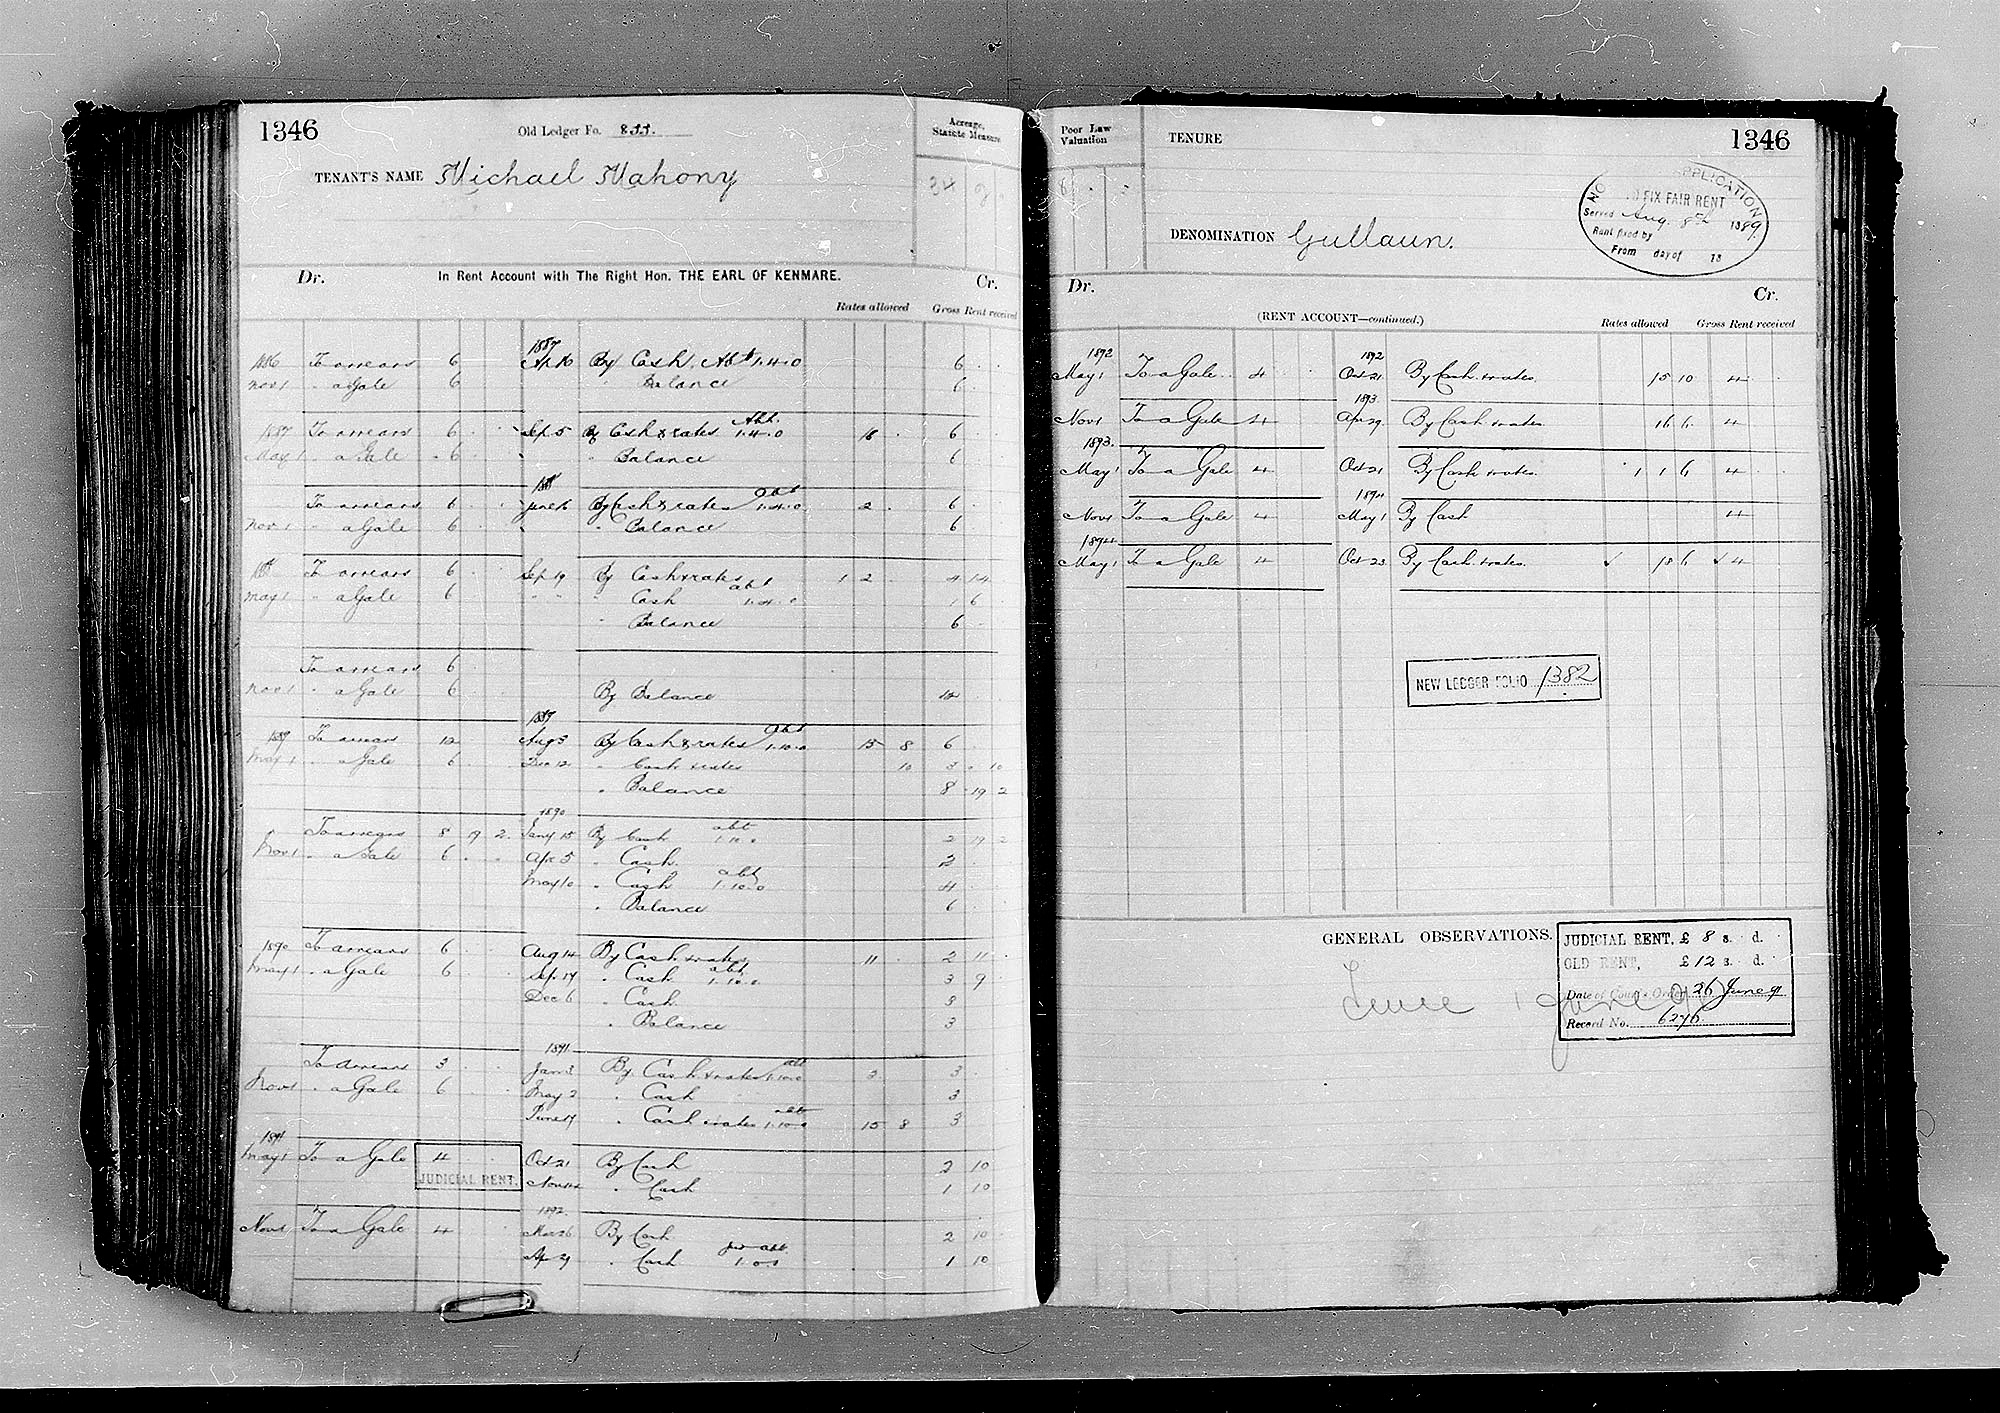 1346 Old Ledger Fo. 855. Acreage, Statute Measure
TENANT'S NAME Michael Mahony 34
Dr. In Rent Account with The Right Hon. THE EARL OF KENMARE. Cr.
Rates allowed Gross Rent received
1887
1886 To arrears 6 By Cash, Abt 1.4.0 6
Nov 1 " a Gale 6 " Balance 6
1887 To arrears 6 Sep 5 By Cash & rates Abt. 1.4.0 18 6
May 1 " a Gale 6 " Balance 6
To arrears 6 June 16 By Cash & rates Abt 1.4.0 2 6
Nov 1 " a Gale 6 " Balance 6
To arrears 6 Sep 19 By Cash & rates 1 2 4 14
May 1 " a Gale 6 " " " Cash abt 1.4.0 1 6
" Balance 6
To arrears 6
Nov 1 " a Gale 6 By Balance 12
1889
1889 To arrears 12 Aug 3 By Cash & rates Abt 1.10.0 15 8 6
May 1 " a Gale 6 Dec 12 " Cash & rates 10 3 " 10
" Balance 8 19 2
1890
To arrears 8 19 2 Jany 15 By Cash abt 1.10.0 2 19 2
Nov 1 " a Gale 6 Apr 5 " Cash 2
May 10 " Cash abt 1.10.0 4
" Balance 6
1890 To arrears 6 Aug 14 By Cash & rates 11 2 11
May 1 " a Gale 6 Sep 17 " Cash abt 1.10.0 3 9
Dec 6 " Cash 3
" Balance 3
1891
To Arrears 3 Jan 3 By Cash & rates abt 1.10.0 2 3
Nov 1 " a Gale 6 May 2 " Cash 3
June 17 " Cash & rates abt 1.10.0 15 8 3
1891
May 1 To a Gale 4 Oct 21 By Cash 2 10
JUDICIAL RENT. Nov 14 " Cash 1 10
1892
Nov 1 To a Gale 4 Mar 26 By Cash 2 10
Apr 29 " Cash abt 1.0.0 1 10
Poor Law Valuation TENURE 1346
APPLICATION
TO FIX FAIR RENT
Served Aug. 8th 1889.
Rent fixed by
From day of 18
DENOMINATION Gullaun.
Dr. Cr.
(RENT ACCOUNT—continued.) Rates allowed Gross Rent received
1892 1892
May 1 To a Gale 4 Oct 21 By Cash & rates. 15 10 4
1893
Nov 1 To a Gale 4 Apr 29 By Cash & rates 16 6 4
1893
May 1 To a Gale 4 Oct 21 By Cash & rates 1 1 6 4
1894
Nov 1 To a Gale 4 May 1 By Cash 4
1894
May 1 To a Gale 4 Oct 23 By Cash & rates. ✓ 18 6 ✓ 4
NEW LEDGER FOLIO 1382
GENERAL OBSERVATIONS.
JUDICIAL RENT, £ 8 s. d.
OLD RENT, £ 12 s. d.
Date of Court Order 26 June 91
Record No. 6276